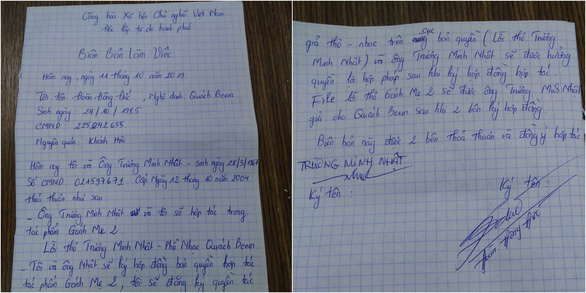 Cộng hòa Xã hội Chủ nghĩa Việt Nam
Độc lập tự do hạnh phúc
Biên Bản Làm Việc
Hôm nay, ngày 11 tháng 10 năm 2019.
Tôi tên Đoàn Đông Đức, Nghệ danh: Quách Beem
Sinh ngày 24/10/1985
CMND
Nguyên quán: Khánh Hòa
Hôm nay tôi và Ông Trương Minh Nhật - sinh ngày
Số CMND: 021597671 Cấp Ngày 12 tháng 10 năm 2004.
thỏa thuận như sau
- Ông Trương Minh Nhật và tôi sẽ hợp tác trong
tác phẩm Gánh Mẹ 2
Lời thơ Trương Minh Nhật - Phổ Nhạc Quách Beem
- Tôi và ông Nhật sẽ ký hợp đồng bản quyền hợp tác
tác phẩm Gánh Mẹ 2, tôi sẽ đăng ký quyền tác
giả thơ - nhạc trên cục bản quyền (Lời thơ Trương
Minh Nhật) và ông Trương Minh Nhật sẽ được hưởng
quyền lợi hợp pháp sau khi ký hợp đồng hợp tác.
File lời thơ Gánh Mẹ 2 sẽ được ông Trương Minh Nhật
gửi cho Quách Beem sau khi 2 bên ký hợp đồng.
Biên bản này được 2 bên thỏa thuận và đồng ý hợp tác
TRƯƠNG MINH NHẬT
Ký tên:
Ký tên: